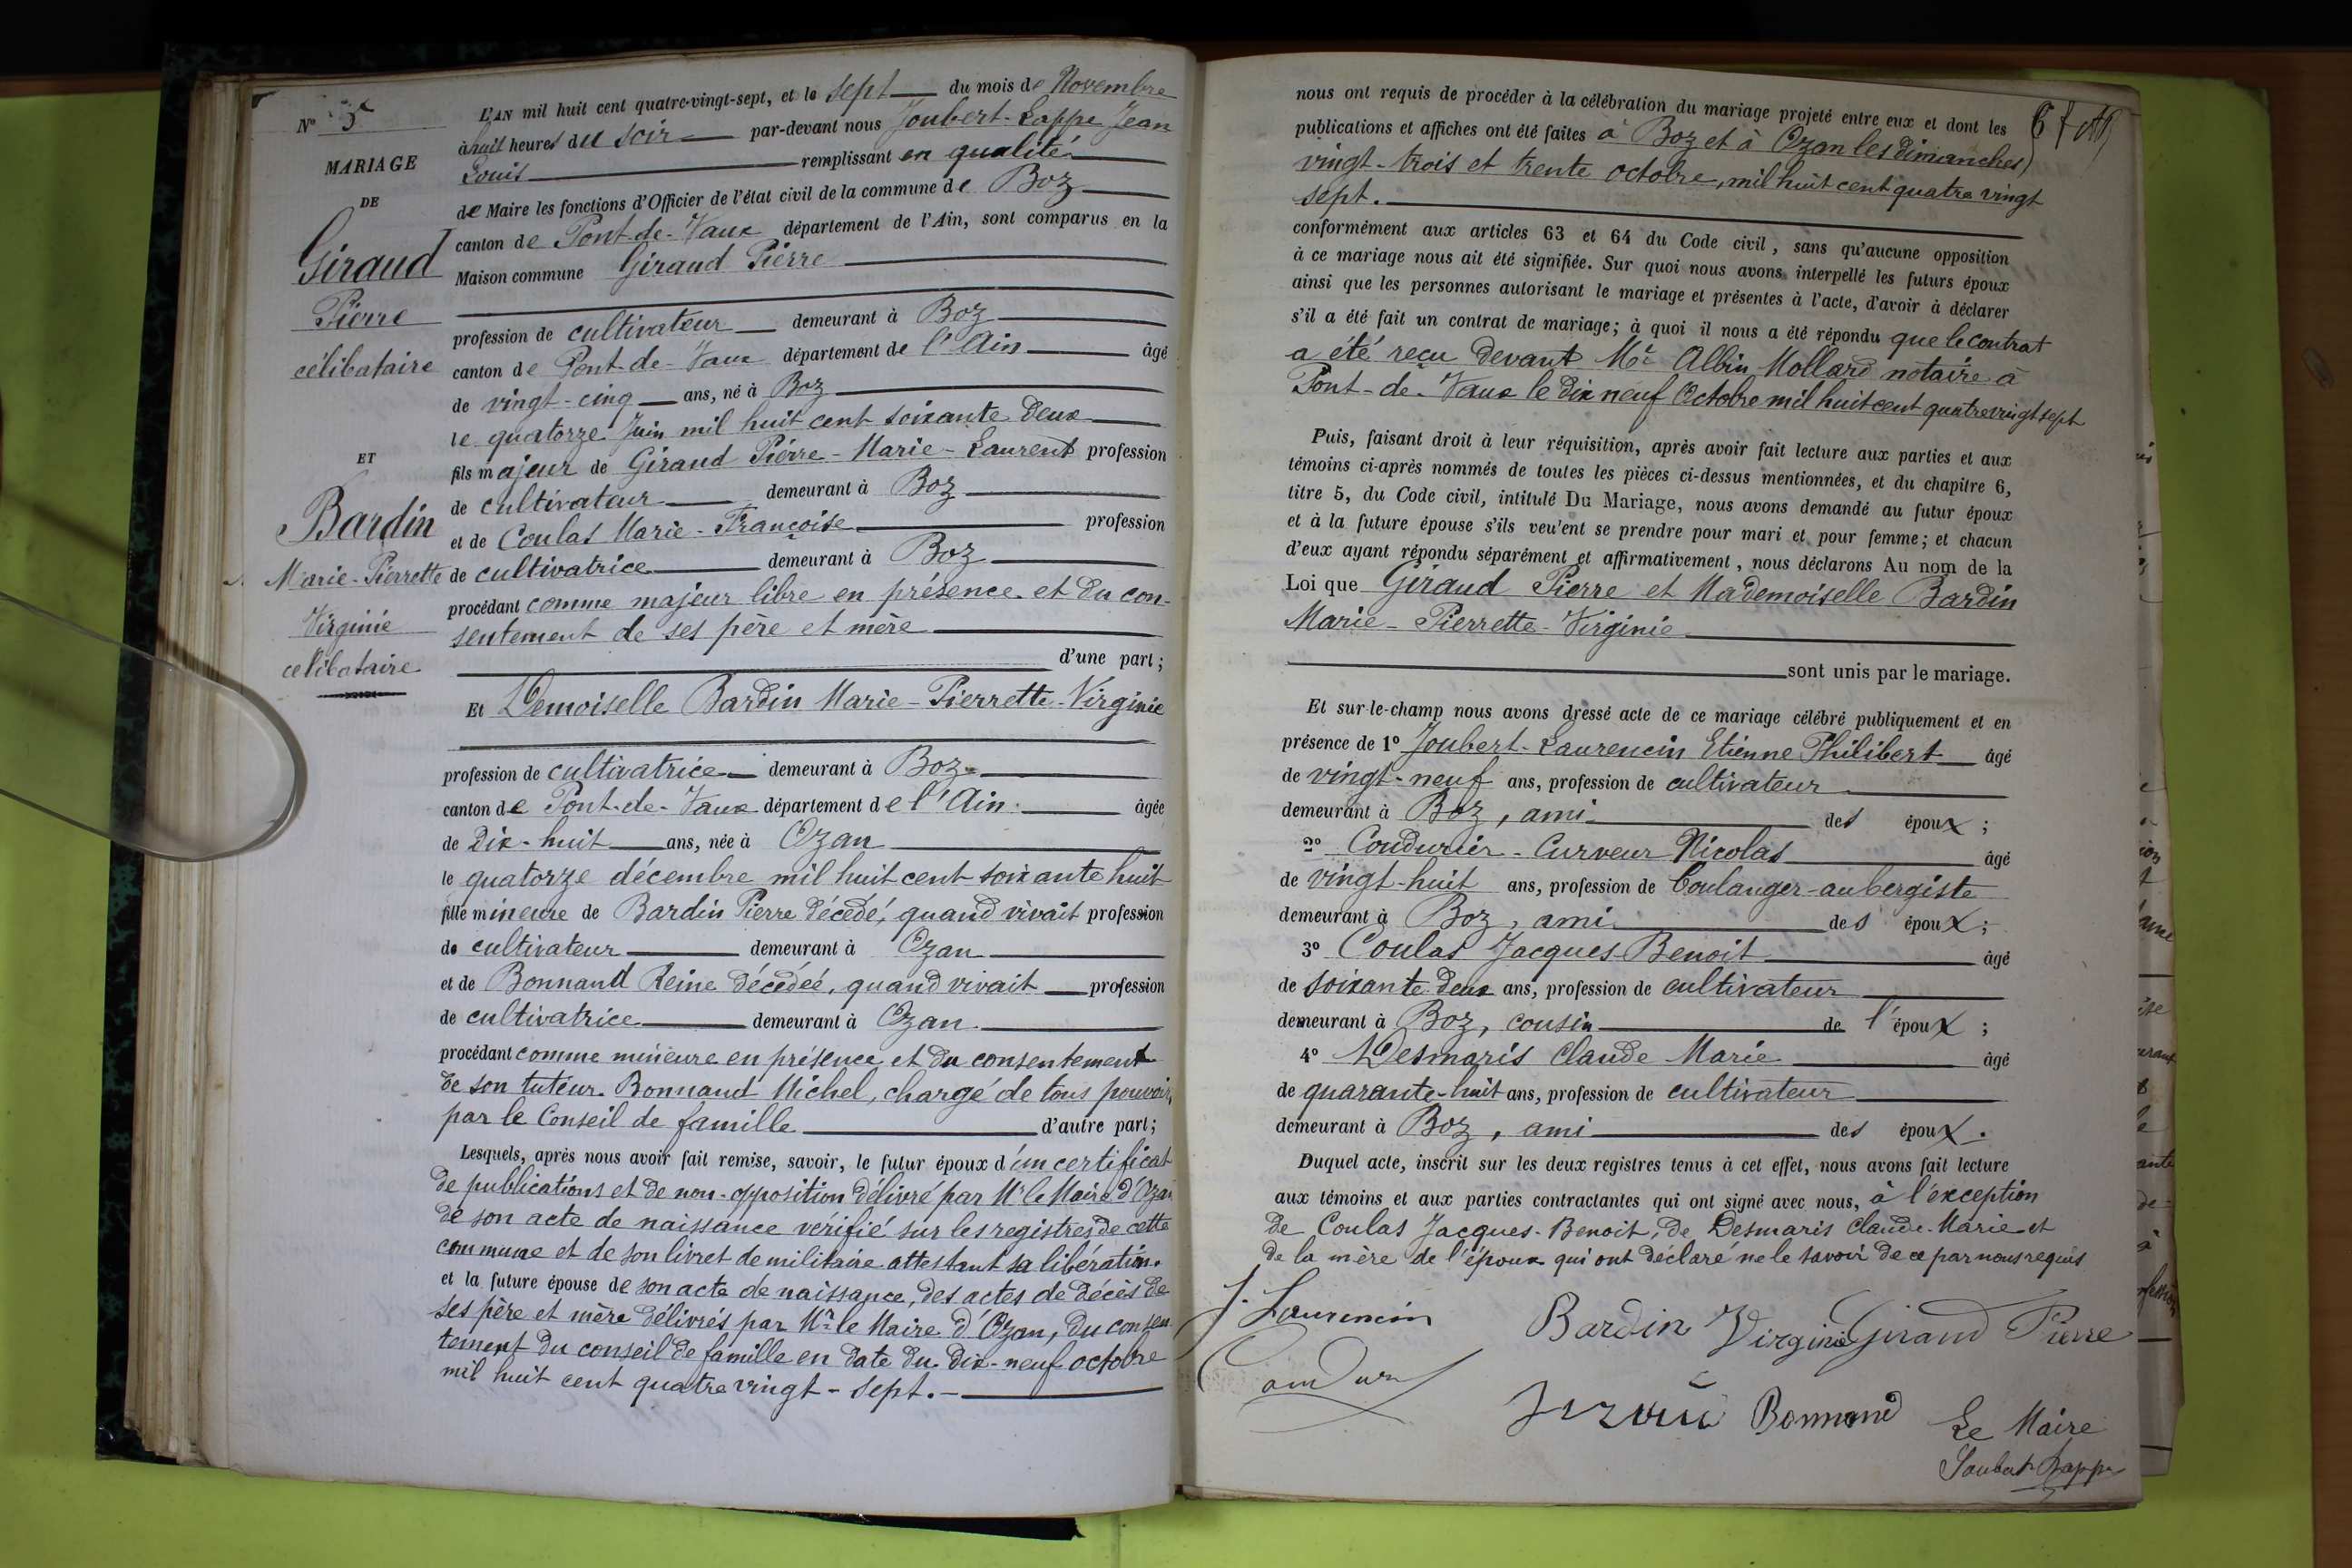 N° 5
MARIAGE
DE
Giraud
Pierre
célibataire
ET
Bardin
Marie-Pierrette
Virginie
célibataire
L'AN mil huit cent quatre-vingt-sept, et le sept du mois de Novembre
à huit heures du soir par-devant nous Joubert-Lappe Jean
Louis remplissant en qualité
de Maire les fonctions d'Officier de l'état civil de la commune de Boz
canton de Pont-de-Vaux département de l'Ain, sont comparus en la
Maison commune Giraud Pierre
profession de cultivateur demeurant à Boz
canton de Pont-de-Vaux département de l'Ain âgé
de vingt-cinq ans, né à Boz
le quatorze Juin mil huit cent soixante deux
fils majeur de Giraud Pierre-Marie-Laurent profession
de cultivateur demeurant à Boz
et de Coulas Marie-Françoise profession
de cultivatrice demeurant à Boz
procédant comme majeur libre en présence et du con-
sentement de ses père et mère
d'une part;
Et Demoiselle Bardin Marie-Pierrette-Virginie
profession de cultivatrice demeurant à Boz
canton de Pont-de-Vaux département de l'Ain âgée
de Dix-huit ans, née à Ozan
le quatorze décembre mil huit cent soixante huit
fille mineure de Bardin Pierre décédé, quand vivait profession
de cultivateur demeurant à Ozan
et de Bonnand Reine décédée, quand vivait profession
de cultivatrice demeurant à Ozan
procédant comme mineure en présence et du consentement
de son tuteur Bonnand Michel, chargé de tous pouvoirs
par le Conseil de famille d'autre part;
Lesquels, après nous avoir fait remise, savoir, le futur époux d'un certificat
de publications et de non-opposition délivré par Mr le Maire d'Ozan
de son acte de naissance vérifié sur les registres de cette
commune et de son livret de militaire attestant sa libération.
et la future épouse de son acte de naissance, des actes de décès de
ses père et mère délivrés par Mr le Maire d'Ozan, du consen
tement du conseil de famille en date du dix-neuf octobre
mil huit cent quatre vingt-sept.
nous ont requis de procéder à la célébration du mariage projeté entre eux et dont les
publications et affiches ont été faites à Boz et à Ozan les dimanches
vingt-trois et trente octobre, mil huit cent quatre vingt
sept.
conformément aux articles 63 et 64 du Code civil, sans qu'aucune opposition
à ce mariage nous ait été signifiée. Sur quoi nous avons interpellé les futurs époux
ainsi que les personnes autorisant le mariage et présentes à l'acte, d'avoir à déclarer
s'il a été fait un contrat de mariage; à quoi il nous a été répondu que le contrat
a été reçu devant Me Albin Mollard notaire à
Pont-de-Vaux le dix neuf Octobre mil huit cent quatre vingt sept
Puis, faisant droit à leur réquisition, après avoir fait lecture aux parties et aux
témoins ci-après nommés de toutes les pièces ci-dessus mentionnées, et du chapitre 6,
titre 5, du Code civil, intitulé Du Mariage, nous avons demandé au futur époux
et à la future épouse s'ils veu'ent se prendre pour mari et pour femme; et chacun
d'eux ayant répondu séparément et affirmativement, nous déclarons Au nom de la
Loi que Giraud Pierre et Mademoiselle Bardin
Marie-Pierrette-Virginie
sont unis par le mariage.
Et sur-le-champ nous avons dressé acte de ce mariage célébré publiquement et en
présence de 1° Joubert-Laurencin Etienne Philibert âgé
de vingt-neuf ans, profession de cultivateur
demeurant à Boz, ami des époux;
2° Coudurier-Curveur Nicolas âgé
de vingt-huit ans, profession de boulanger-aubergiste
demeurant à Boz, ami des époux;
3° Coulas Jacques-Benoit âgé
de soixante-deux ans, profession de cultivateur
demeurant à Boz, cousin de l'époux;
4° Desmaris Claude Marie âgé
de quarante-huit ans, profession de cultivateur
demeurant à Boz, ami des époux.
Duquel acte, inscrit sur les deux registres tenus à cet effet, nous avons fait lecture
aux témoins et aux parties contractantes qui ont signé avec nous, à l'exception
de Coulas Jacques-Benoit, de Desmaris Claude-Marie et
de la mère de l'époux qui ont déclaré ne le savoir de ce par nous requis
J. Laurencin
Bardin Virginie Giraud Pierre
Bonnand
Le Maire
Joubert Lappe